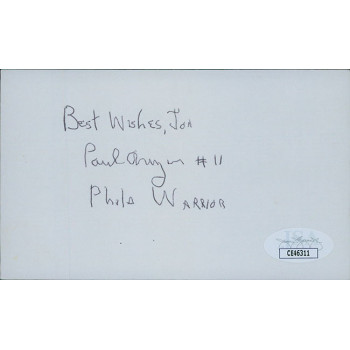 Best Wishes, Jon
Paul Arizin #11
Phila Warrior
JSA
CE46311